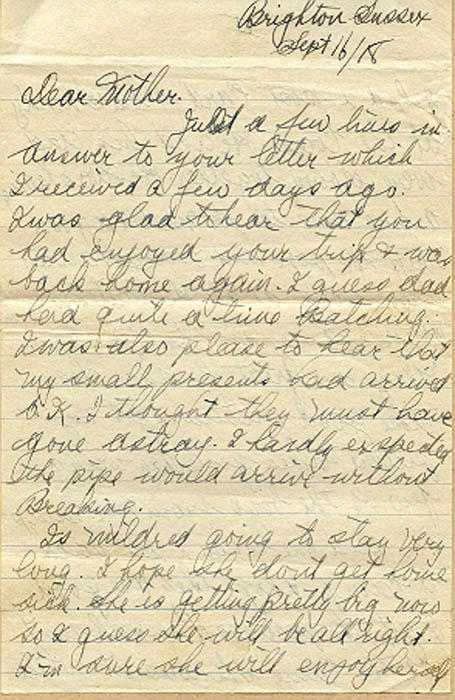 Brighton Sussex
Sept 16/18
Dear Mother.
Just a few lines in
answer to your letter which
I received a few days ago.
I was glad to hear that you
had enjoyed your trip & was
back home again. I guess dad
had quite a time Batching.
I was also please to hear that
my small presents had arrived
O.K. I thought they must have
gone astray. I hardly expected
the pipe would arrive without
Breaking.
Is Mildred going to stay very
long. I hope she dont get home
sick. She is getting pretty big now
so I guess she will be all right.
I'm sure she will enjoy herself